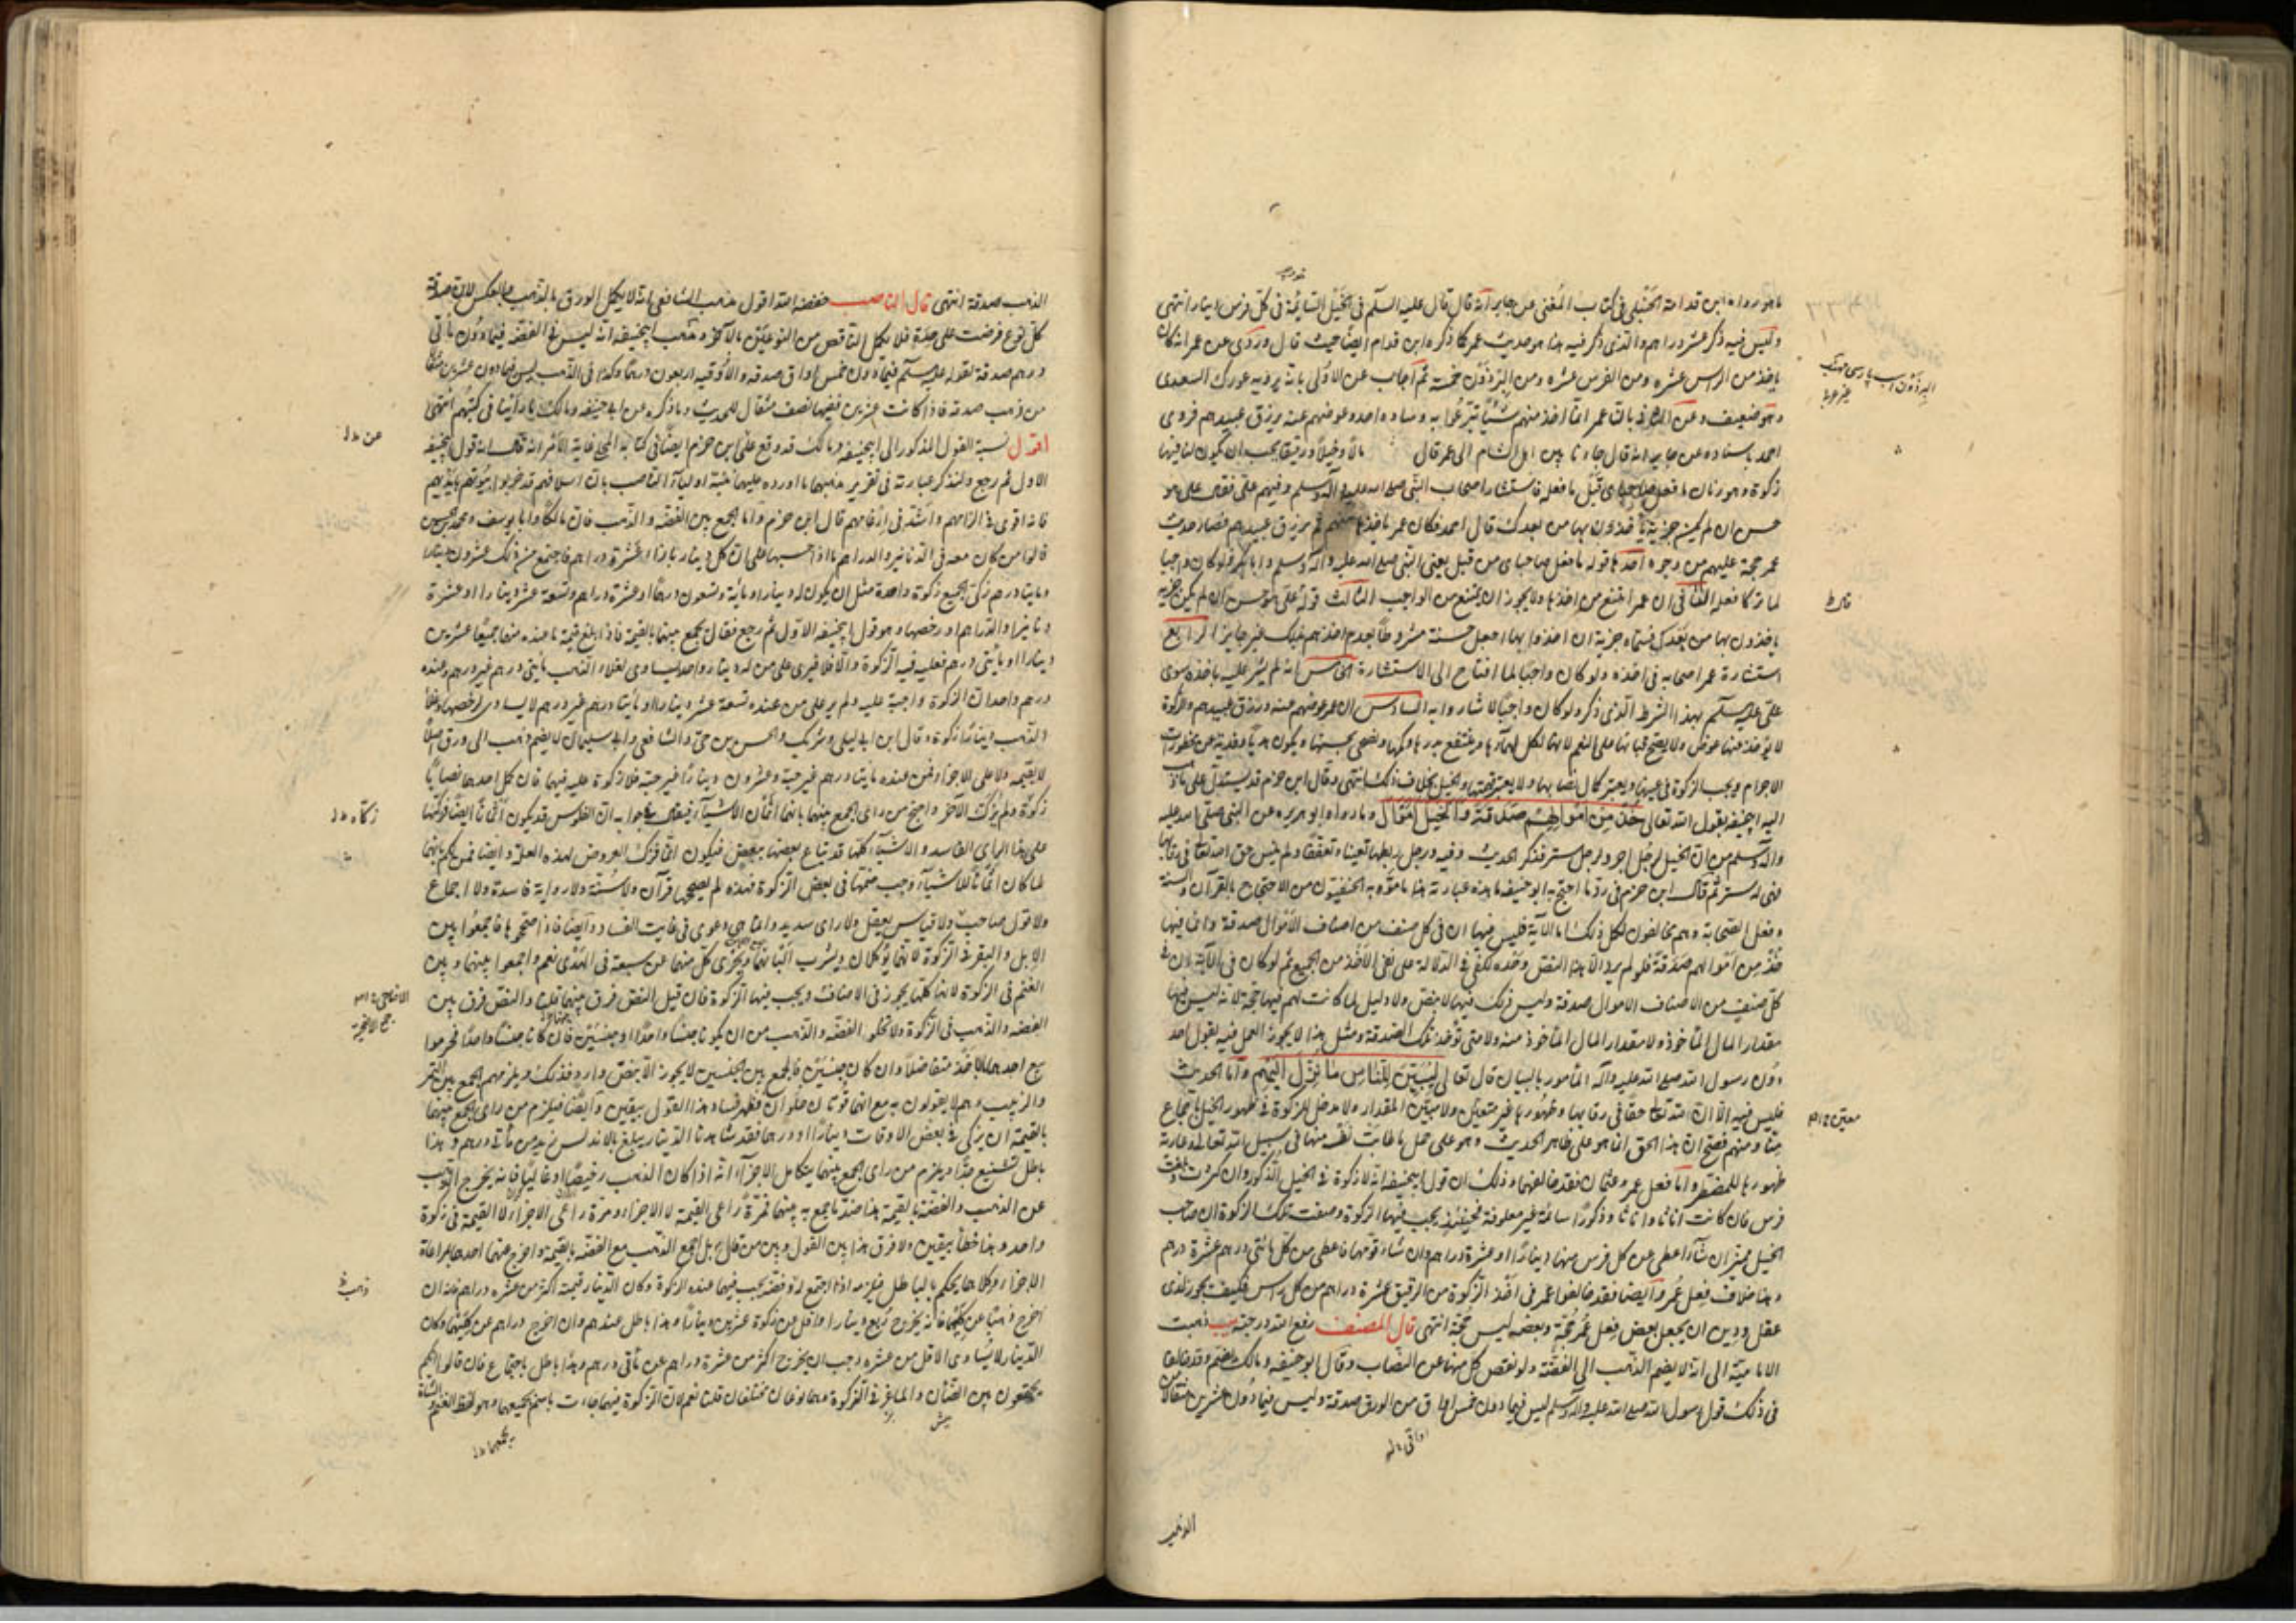 ما هو رواه ابن قدامة الحنبلي في كتاب المغني عن جابر انه قال قال عليه السلم في الخيل السائمة في كل فرس دينار انتهى
وليس فيه ذكر عشر دراهم والذي ذكر فيه هذا هو حديث عمر كما ذكره ابن قدامه ايضا حيث قال وروي عن عمر انه كان
ياخذ من الراس عشره ومن الفرس عشره ومن البرذون خمسة ثم اجاب عن الاولى بانه يرويه غورك السعدي
وهو ضعيف وعن الثاني بان عمر انما اخذ منهم شيئا تبرعوا به وعوضهم عنه برزق عبيدهم فروى
احمد باسناده عن قال جاء ناس من اهل الشام الى عمر قال مالا وخيلا ورقيقا يجب ان يكون لنا فيها
زكوة وطهور قال ما فعله صاحباي قبل ما فعله فاستشار اصحاب النبي صلى الله عليه وآله وسلم وفيهم علي فقال علي هو
حسن ان لم يكن جزية ياخذون بها من بعدك قال احمد فكان عمر ياخذ منهم ثم يرزق عبيدهم فصار حديث
عمر حجة عليهم من وجوه احدها قوله ما فعل صاحباي من قبل يعني النبي صلى الله عليه وآله وسلم وابا بكر ولو كان واجبا
لما تركا فعله الثاني ان عمر امتنع من اخذها ولا يجوز ان يمتنع من الواجب الثالث قول علي هو حسن ان لم يكن جزية
ياخذون بها من بعدك فسماه جزية ان اخذوا بها وجعل حسنه مشروطا بعدم اخذهم به فليس غير جايز الرابع
استشارة عمر اصحابه في اخذه ولو كان واجبا لما احتاج الى الاستشارة الخامس انه لم يشر عليه باخذه سوى
علي عليه السلم بهذا الشرط الذي ذكره ولو كان واجبا لاشاروا به السادس ان عمر عوضهم عنه ورزق عبيدهم والزكوة
لا يؤخذ عنها عوض ولا يصح قياسها على النعم لانها يكمل نماؤها وينتفع بدرها ولحمها ويضحى بجنسها ويكون هديا وفدية عن محظورات
الاحرام ويجب الزكوة في عينها ويعتبر كمال نصابها ولا يعتبر قيمتها والخيل بخلاف ذلك انتهى وقال ابن حزم قد يستدل على ما ذهب
اليه ابو حنيفه بقول الله تعالى خذ من اموالهم صدقة والخيل اموال وبما رواه ابو هريره عن النبي صلى الله عليه
وآله وسلم من ان الخيل لرجل اجر ولرجل ستر فذكر الحديث وفيه ورجل ربطها تغنيا وتعففا ولم ينس حق الله تعالى في رقابها
فهي له ستر ثم قال ابن حزم في رد ما احتج به ابو حنيفه ما هذه عبارته هذا ما موه به الحنفيون من الاحتجاج بالقرآن والسنة
وفعل الصحابة وهم مخالفون لكل ذلك اما الآية فليس فيها ان في كل صنف من اصناف الاموال صدقة وانما فيها
خذ من اموالهم صدقة فلو لم يرد الا هذا النص وحده لكفى في الدلالة على نفي الاخذ من الجميع ثم لو كان في الآية ان في
كل صنف من الاصناف الاموال صدقة وليس ذلك فيها لا بنص ولا دليل لما كانت لهم فيها حجة لانه ليس فيها
مقدار المال المأخوذ ولا مقدار المال المأخوذ منه ولا متى تؤخذ تلك الصدقة ومثل هذا لا يجوز العمل فيه بقول احد
دون رسول الله صلى الله عليه وآله المأمور بالبيان قال تعالى لتبين للناس ما نزل اليهم واما الحديث
فليس فيه الا ان لله تعالى حقا في رقابها وظهورها غير معين ولا مبين المقدار ولا مدخل للزكوة في ظهور الخيل باجماع
منا ومنهم فصح ان هذا الحق انما هو على ظاهر الحديث وهو على حمل ما طابت نفسه منها في سبيل الله تعالى وعارية
ظهورها للمضطر واما فعل عمر وعثمان فقد خالفوهما وذلك ان قول ابي حنيفه انه لا زكوة في الخيل الذكور وان كثرت وبلغت الف
فرس فان كانت اناثا او اناثا وذكورا سائمة غير معلوفة فحينئذ يجب فيها الزكوة وصفت تلك الزكوة ان صاحب
الخيل مخير ان شاء اعطى عن كل فرس منها دينارا او عشرة دراهم وان شاء قومها فاعطى من كل مائتي درهم عشرة دراهم
وهذا خلاف فعل عمر وايضا فقد خالفوا عمر في اخذ الزكوة من الرقيق عشرة دراهم من كل راس فكيف يجوز لذي
عقل ودين ان يجعل بعض فعل عمر حجة وبعضه ليس حجة انتهى قال المصنف رفع الله درجته ذهبت
الامامية الى انه لا يضم الذهب الى الفضة ولو نقص كل منهما عن النصاب وقال ابو حنيفه ومالك يضم وقد خالفا
في ذلك قول رسول الله صلى الله عليه وآله وسلم ليس فيما دون خمس اواق من الورق صدقة وليس فيما دون عشرين مثقالا من
الذهب
البرذون اسب پارسى
معين
اواقي
الذهب صدقة انتهى قال الناصب خفضه الله اقول مذهب الشافعي انه لا يكمل الورق بالذهب ولا بالعكس لان صدقة
كل نوع فرضت على حدة فلا يكمل الناقص من النوعين بالآخر ومذهب ابي حنيفه انه ليس في الفضة فيما دون مائتي
درهم صدقة لقوله عليه السلم فيما دون خمس اواق صدقه والاوقيه اربعون درهما وكذا في الذهب ليس فيما دون عشرين مثقالا
من ذهب صدقه فاذا كانت عشرين ففيها نصف مثقال للحديث وما ذكره عن ابي حنيفه ومالك ما راينا في كتبهم انتهى
اقول نسبة القول المذكور الى ابي حنيفه ومالك قد وقع عن ابن حزم ايضا في كتابه المحلى غاية الامر انه قال انه قول ابي حنيفه
الاول ثم رجع ولنذكر عبارته في تقرير مذهبهما وما اورده عليهما
فانه اقوى في الزامهم واشد في ارغامهم قال ابن حزم واما الجمع بين الفضه والذهب فان مالكا وابا يوسف ومحمد بن الحسن
قالوا من كان معه من الدنانير والدراهم ما اذا حسبها على ان كل دينار بازاء عشرة دراهم فاجتمع من ذلك عشرون دينارا
او مايتا درهم زكى الجميع زكوة واحدة مثل ان يكون له دينار او مائة وتسعون درهما او عشرة دراهم وتسعة عشر دينارا او عشرة
دنانير او الدراهم او رخصها وهو قول ابي حنيفه الاول ثم رجع فقال يجمع بينهما بالقيمة فاذا بلغ قيمة ما عنده منهما جميعا عشرين
دينارا او مائتي درهم فعليه فيه الزكوة والا فلا فيرى على من له دينار واحد يساوي لغلاء الذهب مايتي درهم غير درهم وعنده
درهم واحد ان الزكوة واجبة عليه ولم ير على من عنده تسعة عشر دينارا ومائتا درهم غير درهم لا يساوي لرخصها
الذهب دينارا زكوة وقال ابن ابي ليلى وشريك والحسن بن حي والشافعي وابو سليمان لا يضم ذهب الى ورق اصلا
لا بقيمه ولا على الاجزاء فمن عنده مايتا درهم غير حبة وعشرون دينارا غير حبة فلا زكوة عليه فيهما فان كمل احدهما نصابا
زكوة ولم يزك الآخر واحتج من راى الجمع بينهما بانهما اثمان الاشياء فيقال جوابه ان الفلوس قد يكون اثمانا ايضا فزكها
على هذا الراي الفاسد والاشياء كلها قد تباع بعضها ببعض فيكون اثمانا فزك العروض لهذه العلة وايضا فمن لكم بانهما
لما كانا اثمانا للاشياء وجب ضمهما في بعض الزكوة فهذه لم يصححها قرآن ولا سنة ولا رواية فاسدة ولا اجماع
ولا قول صاحب ولا قياس يعقل ولا راي سديد وانما هي دعوى في غايت الفساد وايضا فاذا صححتموها فاجمعوا بين
الابل والبقر في الزكوة لانهما يؤكلان ويشرب البانهما ويجزي كل منهما عن سبعة في الهدي نعم واجمعوا بينهما وبين
الغنم في الزكوة لانها كلها يجوز في الاضاحي ويجب فيها الزكوة فان قيل النص فرق بينهما قلنا والنص فرق بين
الفضه والذهب في الزكوة ولا تخلو الفضه والذهب من ان يكونا جنسا واحدا او جنسين فان كانا جنسا واحدا فحرموا
بيع احدهما بالآخر متفاضلا وان كانا جنسين فالجمع بين الجنسين لا يجوز الا بنص وارد في ذلك ويلزمهم الجمع بين التمر
والزبيب وهم لا يقولون به مع انهما قوتان حلوان فظهر فساد هذا القول بيقين وايضا فيلزم من راى الجمع بينهما
بالقيمة ان يزكى في بعض الاوقات دينارا او درهما فقد شاهدنا الدينار يبلغ بالاندلس ازيد من مائتي درهم وهذا
باطل تشنيع جدا ويلزم من راى الجمع بينهما بتكامل الاجزاء انه اذا كان الذهب رخيصا او غاليا فانه يخرج الذهب
عن الذهب والفضة بالقيمة هذا ضد ما جمع به بينهما فمرة راعى القيمة لا الاجزاء ومرة راعى الاجزاء لا القيمة في زكوة
واحده وهذا خطأ بيقين ولا فرق هذا بين القول وبين من قال بل اجمع الذهب مع الفضه بالقيمة واخرج عنهما احدهما مراعاة
الاجزاء وكلاهما يحكم بالباطل فيلزمه اذا اجتمع له ذهب وفضه يجب فيهما عنده الزكوة وكان الدينار قيمته اكثر من عشره دراهم فانه ان
اخرج ذهبا عن كليهما فانه يخرج ربع دينار او اقل عن زكوة عشرين دينارا وهذا باطل عندهم وان اخرج دراهم عن كليهما وكان
الدينار لا يساوي الا اقل من عشره وجب ان يخرج اكثر من عشرة دراهم عن مائتي درهم وهذا باطل باجماع فان قالوا انكم
تجمعون بين الضأن والماعز في الزكوة وهما نوعان مختلفان قلنا نعم لان الزكوة فيهما جاءت باسم يجمعهما وهو لفظ الغنم والشاة
زكاه
ذهب